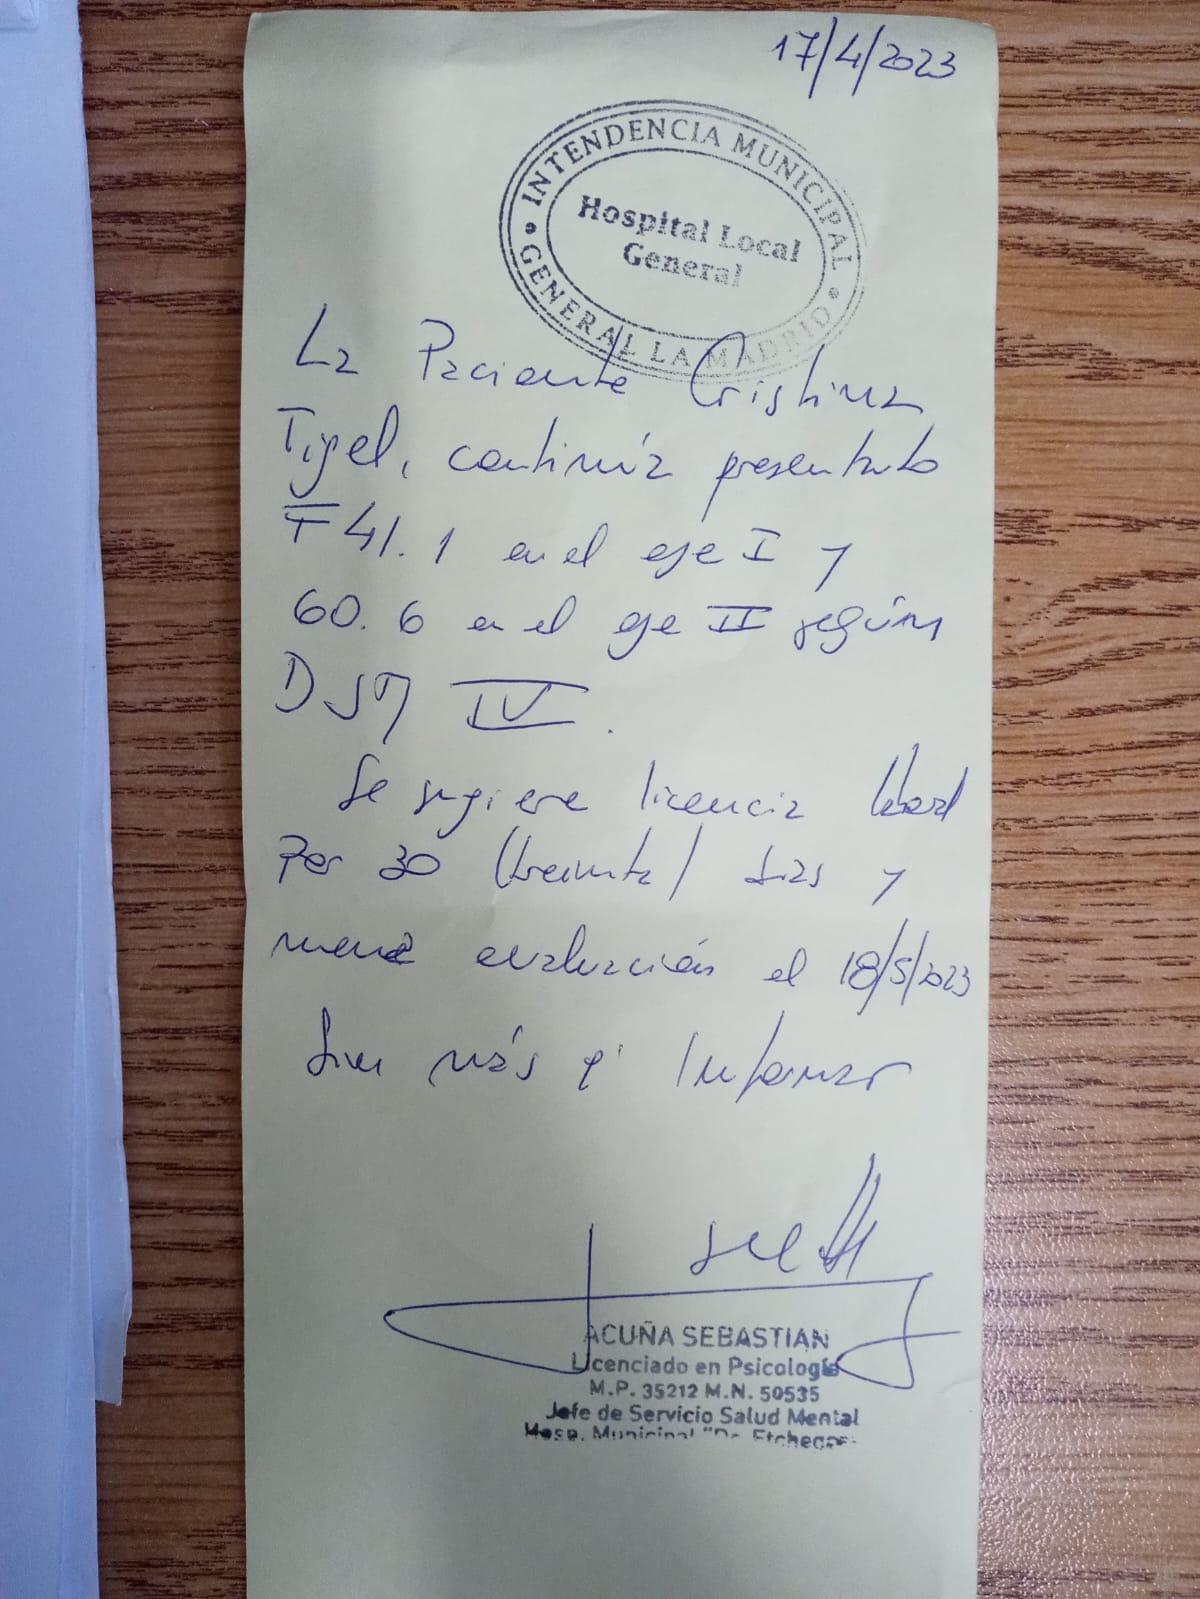 17/4/2023
INTENDENCIA MUNICIPAL
Hospital Local
General
GENERAL LA MADRID
La Paciente Cristina
continúa presentando
F 41.1 en el eje I y
60.6 en el eje II según
DSM IV.
Se sugiere licencia laboral
Por 30 (treinta) días y
nueva evaluación el 18/5/2023
Sin más q' Informar
ACUÑA SEBASTIAN
Licenciado en Psicología
M.P. 35212 M.N. 50535
Jefe de Servicio Salud Mental
Hosp. Municipal "Dr.